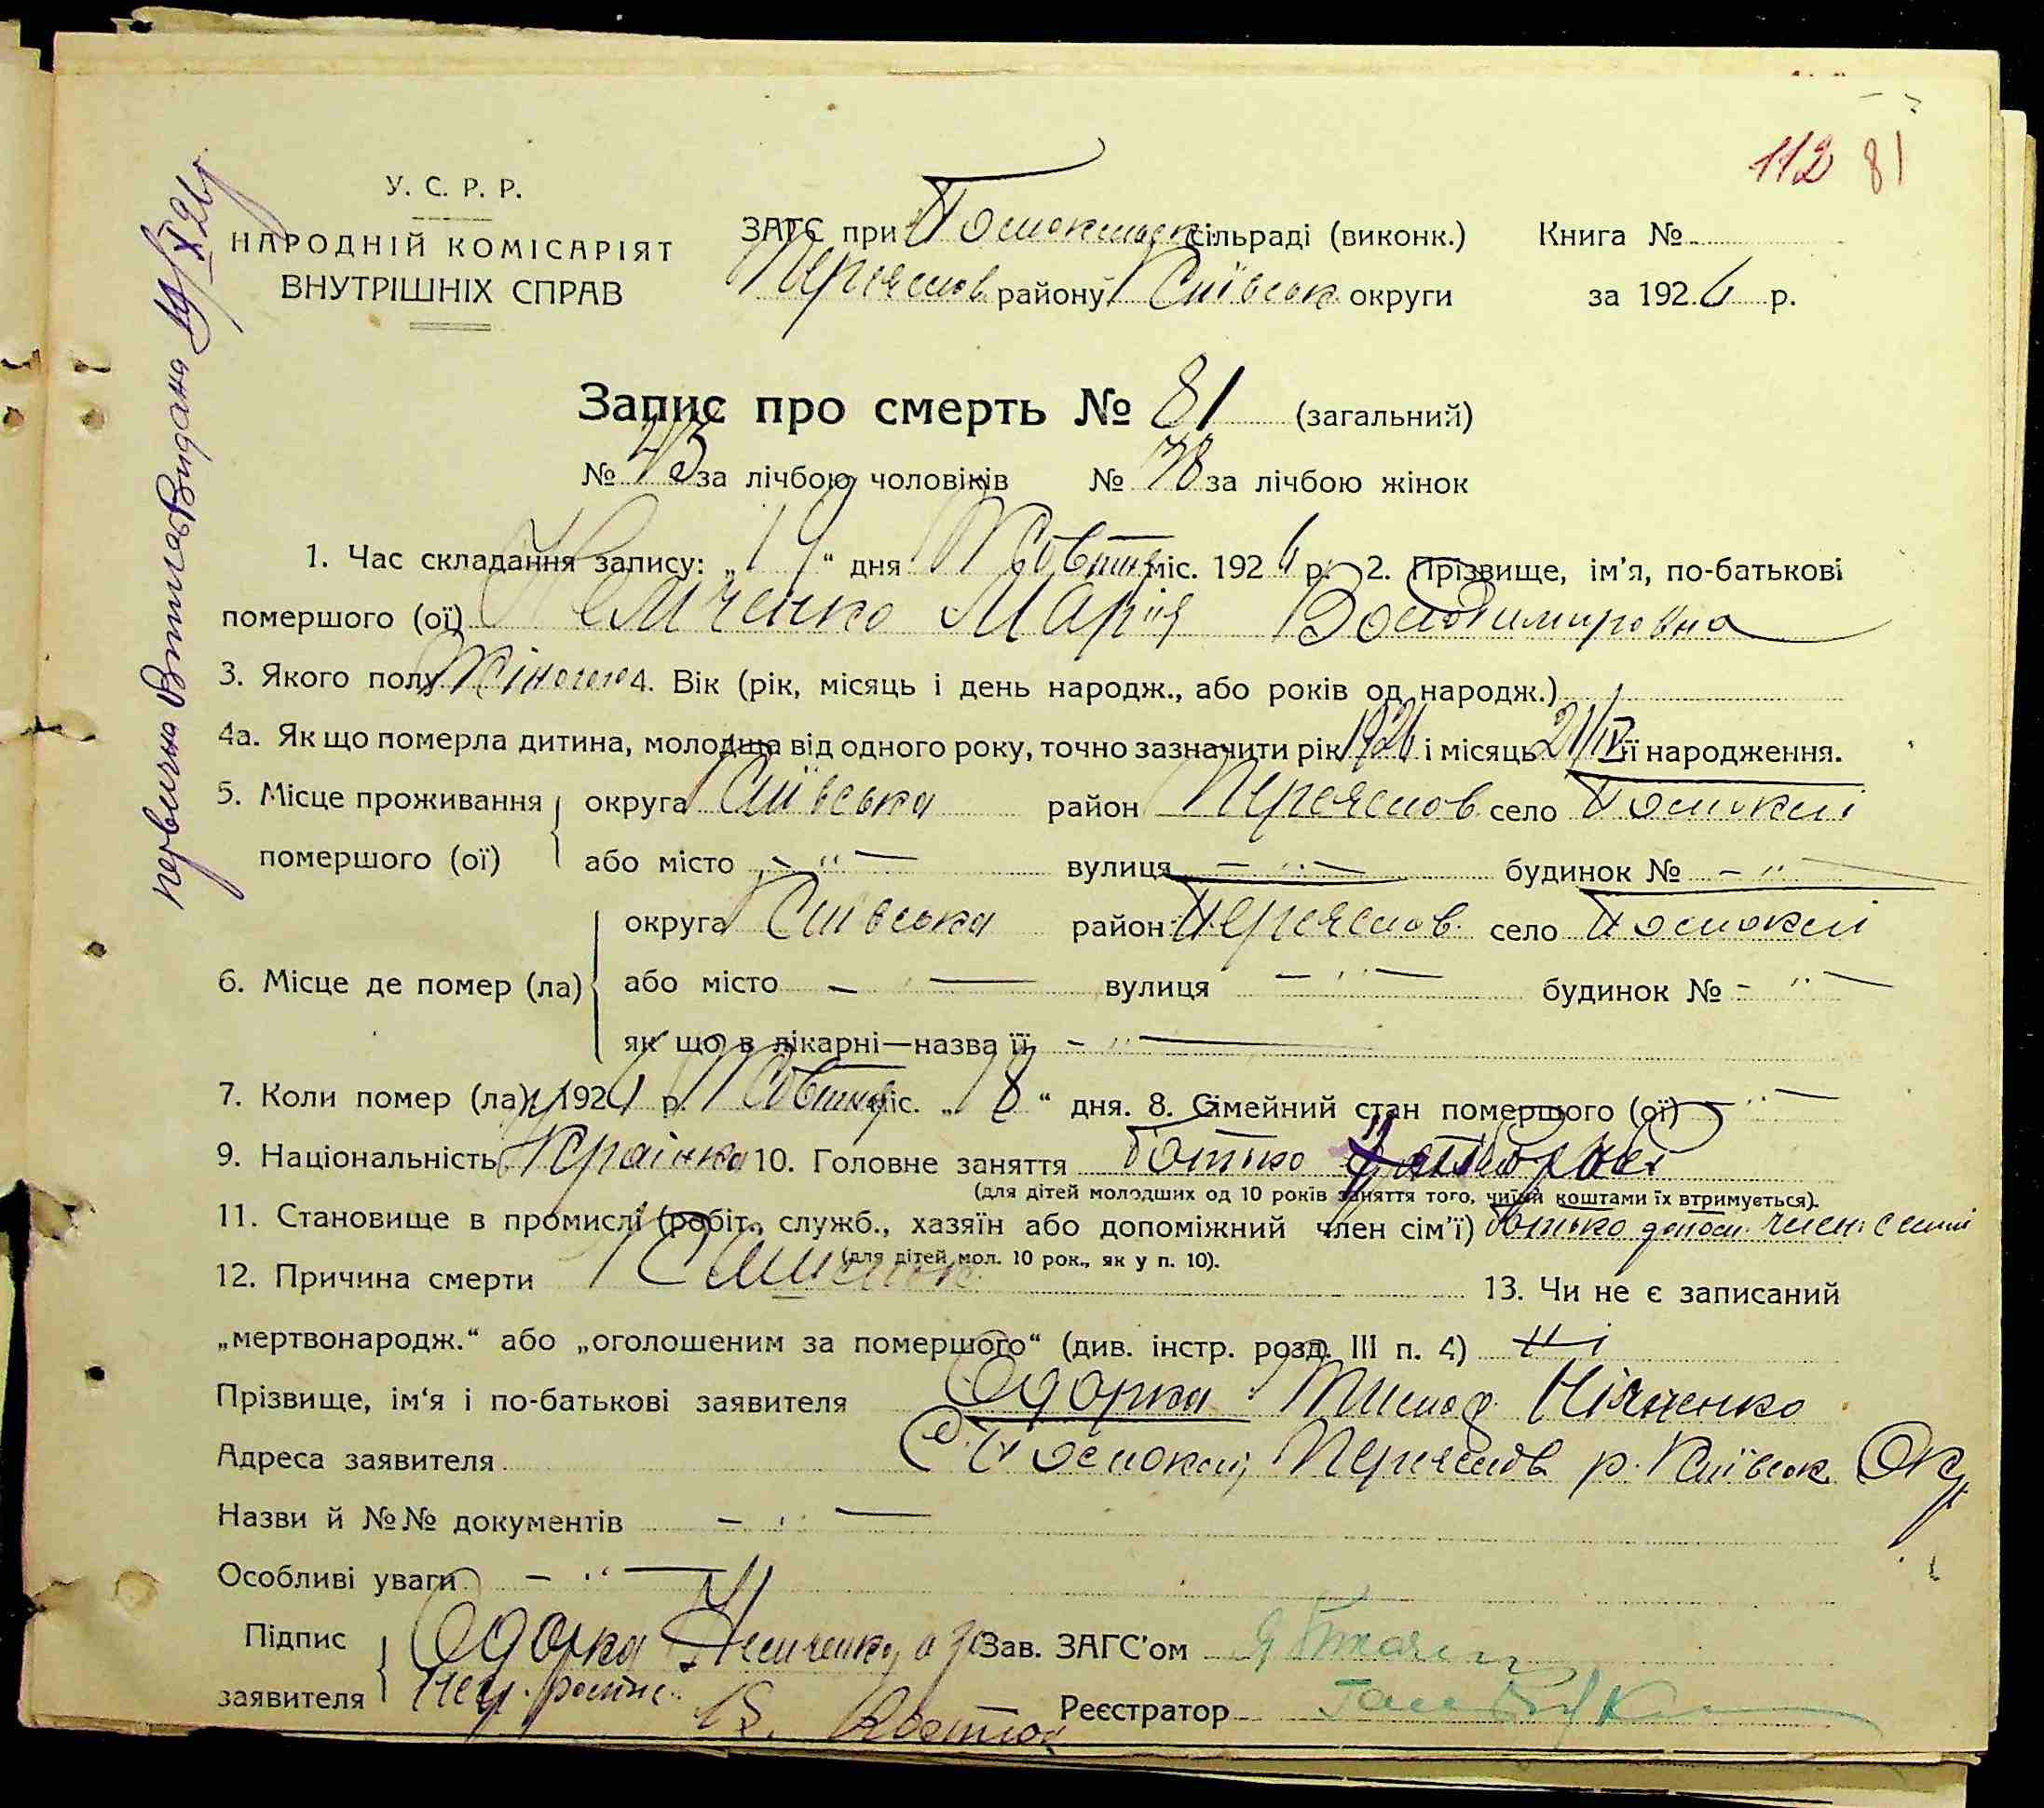 112 81
У. С. Р. Р.
НАРОДНІЙ КОМІСАРІЯТ
ВНУТРІШНІХ СПРАВ
ЗАГС при сільраді (виконк.) Книга №
Переяслов. району Київськ. округи за 1926 р.
Запис про смерть № 81 (загальний)
№ 43 за лічбою чоловіків № 38 за лічбою жінок
1. Час складання запису: „19“ дня Жовтня міс. 1926 р. 2. Прізвище, ім'я, по-батькові
помершого (ої) Немченко Марія Володимировна
3. Якого полу Жіночого 4. Вік (рік, місяць і день народж., або років од народж.)
4а. Як що померла дитина, молодша від одного року, точно зазначити рік 1926 і місяць 21/IV її народження.
5. Місце проживання округа Київська район Переяслов. село
помершого (ої) або місто — " — вулиця — " — будинок № — " —
округа Київська район Переяслов. село
6. Місце де помер (ла) або місто — " — вулиця — " — будинок № — " —
як що в лікарні—назва її — " —
7. Коли помер (ла) 1926 р. Жовтня міс. „18“ дня. 8. Сімейний стан помершого (ої) — " —
9. Національність Українка 10. Головне заняття батько хлібороб
(для дітей молодших од 10 років заняття того, чиїми коштами їх втримується).
11. Становище в промислі (робіт., служб., хазяїн або допоміжний член сім'ї) батько допом. член сімї
(для дітей мол. 10 рок., як у п. 10).
12. Причина смерти 13. Чи не є записаний
„мертвонародж.“ або „оголошеним за помершого“ (див. інстр. розд. III п. 4) ні
Прізвище, ім'я і по-батькові заявителя Одарка
Адреса заявителя с. Переяслов р. Київськ. Окр
Назви й №№ документів — " —
Особливі уваги — " —
Підпис Одарка Немченко а за Зав. ЗАГС'ом
заявителя Реєстратор
первична Виписка Видана 19/X 26 р